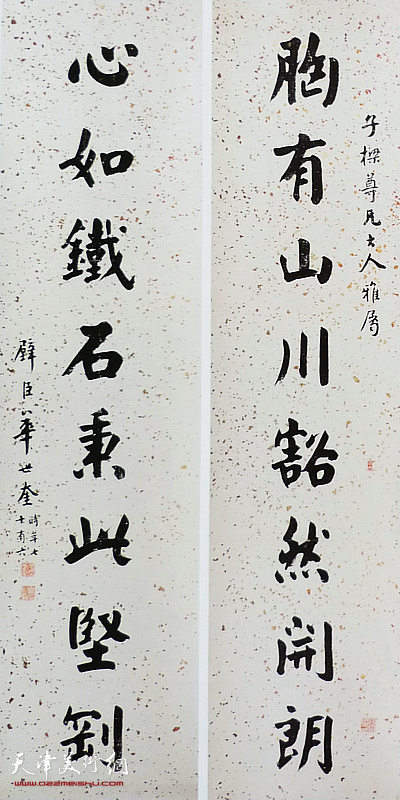 子樑尊兄大人雅属
胸有山川豁然開朗
心如鐵石秉此堅剛
璧臣華世奎
時年七
十有六
天津美术网
www.022meishu.com